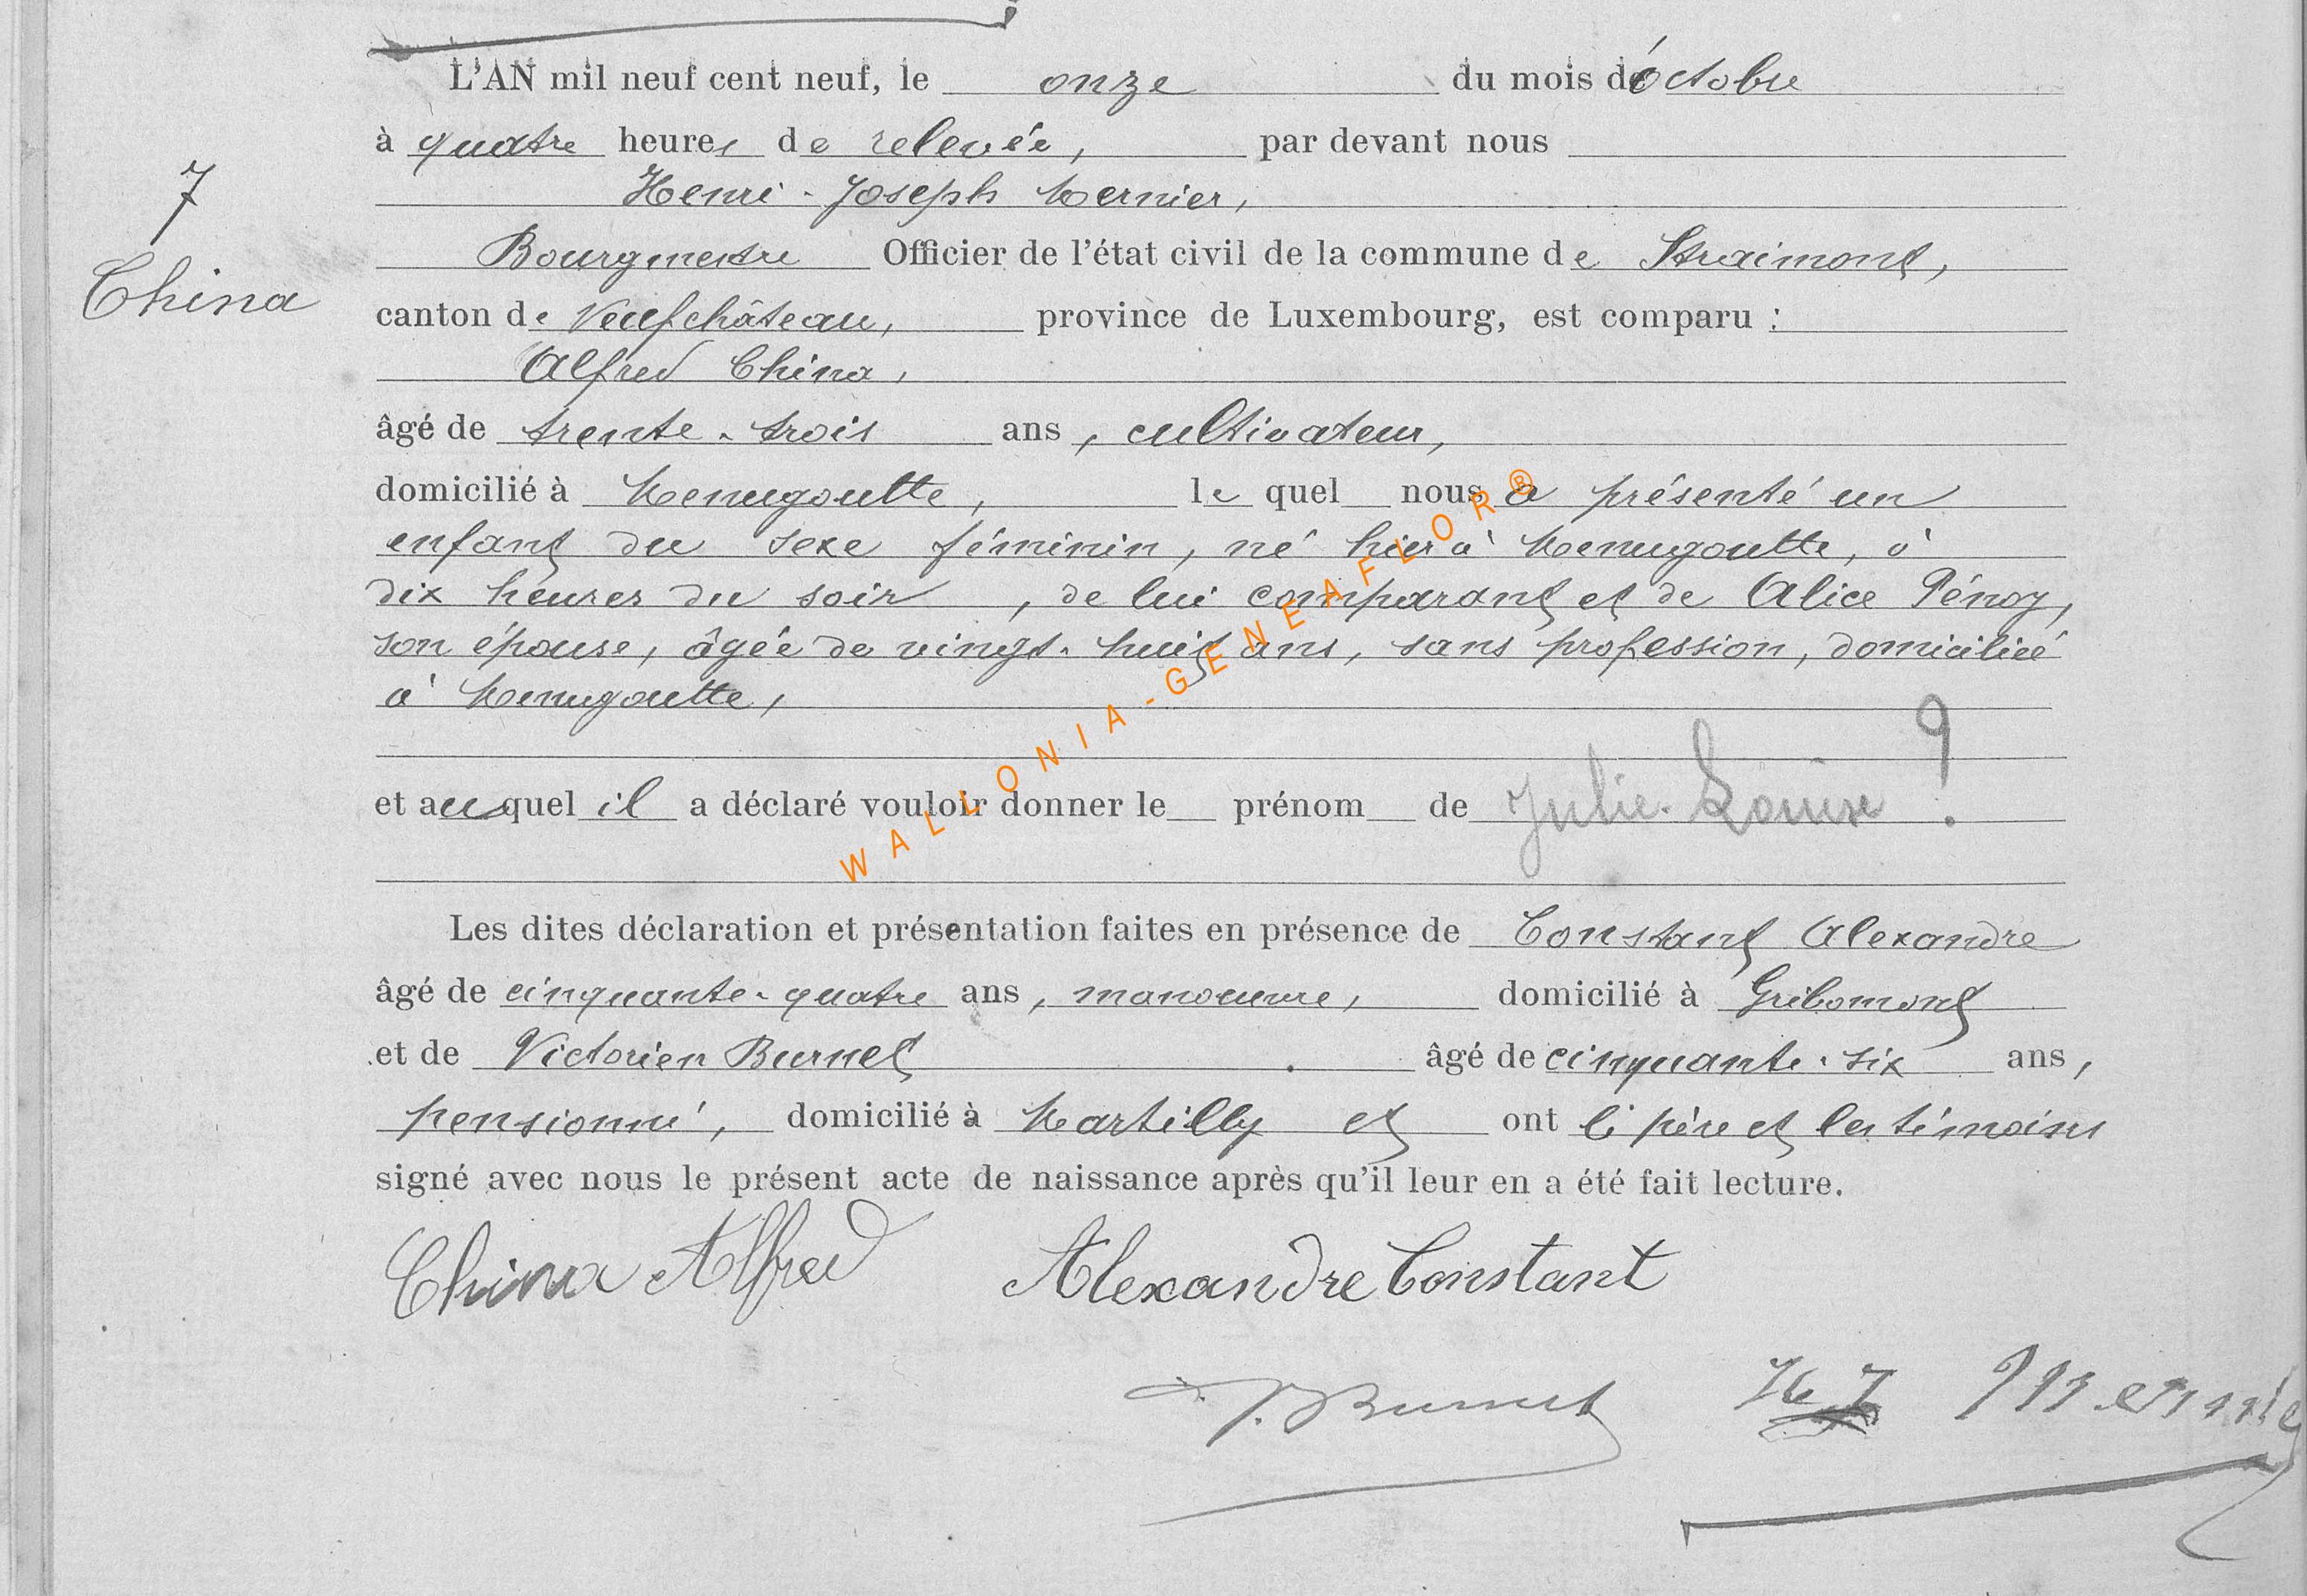 L'AN mil neuf cent neuf, le onze du mois d'octobre
à quatre heures de relevée, par devant nous
Henri-Joseph Mernier,
7
Bourgmestre Officier de l'état civil de la commune de Straimont,
China
canton de Neufchâteau, province de Luxembourg, est comparu :
Alfred China,
âgé de trente-trois ans, cultivateur,
domicilié à Menugoutte, le quel nous a présenté un
enfant du sexe féminin, né hier à Menugoutte, à
dix heures du soir, de lui comparant et de Alice Pénoy,
son épouse, âgée de vingt-huit ans, sans profession, domiciliée
à Menugoutte,
et auquel il a déclaré vouloir donner le prénom de Julie-Louise ?
Les dites déclaration et présentation faites en présence de Constant Alexandre
âgé de cinquante-quatre ans, manoeuvre, domicilié à Gribomont
et de Victorien Burnet âgé de cinquante-six ans,
pensionné, domicilié à Martilly et ont le père et les témoins
signé avec nous le présent acte de naissance après qu'il leur en a été fait lecture.
China Alfred Alexandre Constant
V. Burnet H J Mernier
WALLONIA-GENEAFLOR®